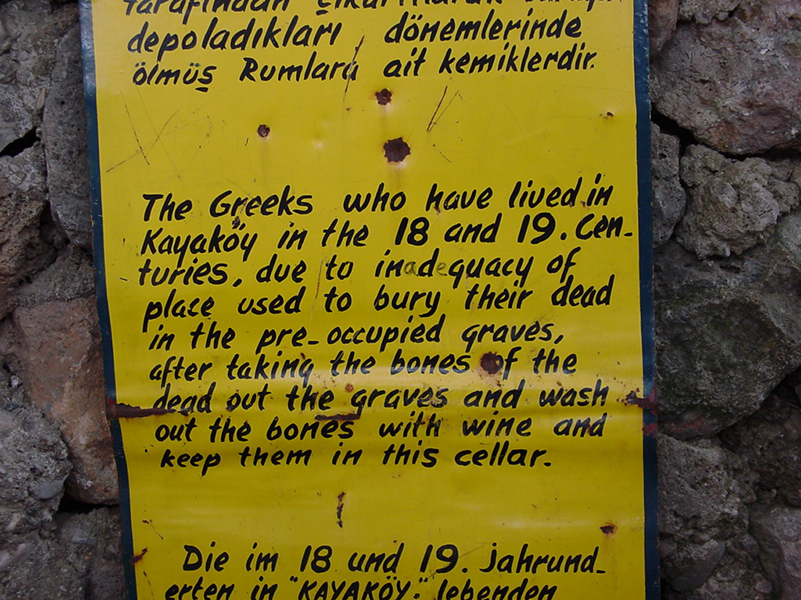 tarafından çıkartılarak
depoladıkları dönemlerinde
ölmüş Rumlara ait kemiklerdir.
The Greeks who have lived in
Kayaköy in the 18 and 19. Cen-
turies, due to inadequacy of
place used to bury their dead
in the pre-occupied graves,
after taking the bones of the
dead out the graves and wash
out the bones with wine and
keep them in this cellar.
Die im 18 und 19. Jahrund-
erten in "KAYAKÖY." lebenden